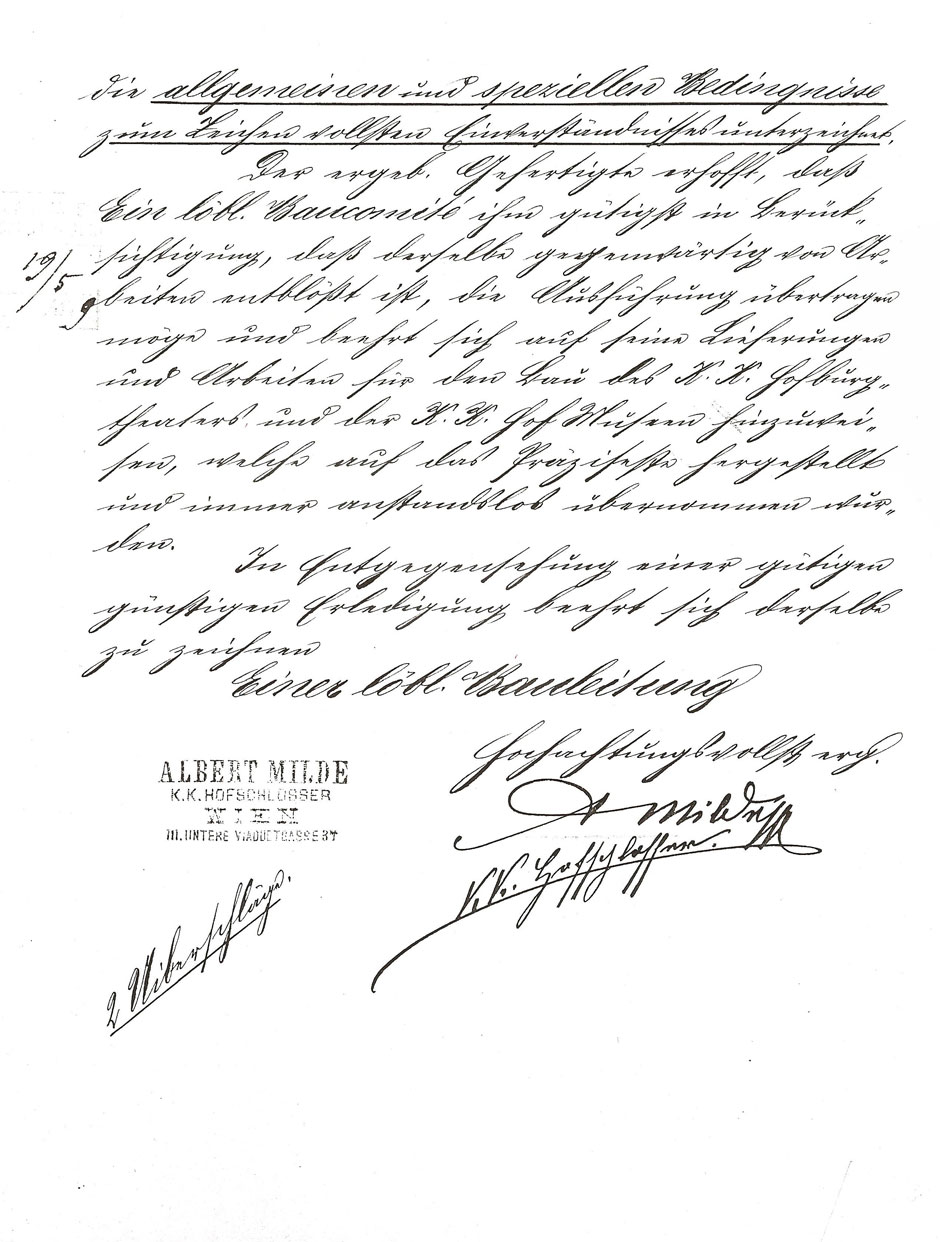 die allgemeinen und speziellen Bedingnisse
zum Zeichen vollsten Einverständnisses unterzeichnet.
Der ergeb. Gefertigte erhofft, daß
Ein löbl. Baucomité ihm gütigst in Berück„
sichtigung, daß derselbe gegenwärtig von Ar„
19/5
beiten entblößt ist, die Ausführung übertragen
möge und beehrt sich auf seine Lieferungen
und Arbeiten für den Bau des K. K. Hofburg„
theaters und der K. K. Hof Museen hinzuwei„
sen, welche auf das Präziseste hergestellt
und immer anstandslos übernommen wur„
den.
In Entgegensehung einer gütigen
günstigen Erledigung beehrt sich derselbe
zu zeichnen
Einer löbl. Bauleitung
hochachtungsvollst erg.
ALBERT MILDE
K.K. HOFSCHLOSSER
WIEN
III. UNTERE VIADUCTGASSE
A Milde
K.K. Hofschlosser.
2 Uiberschläge.